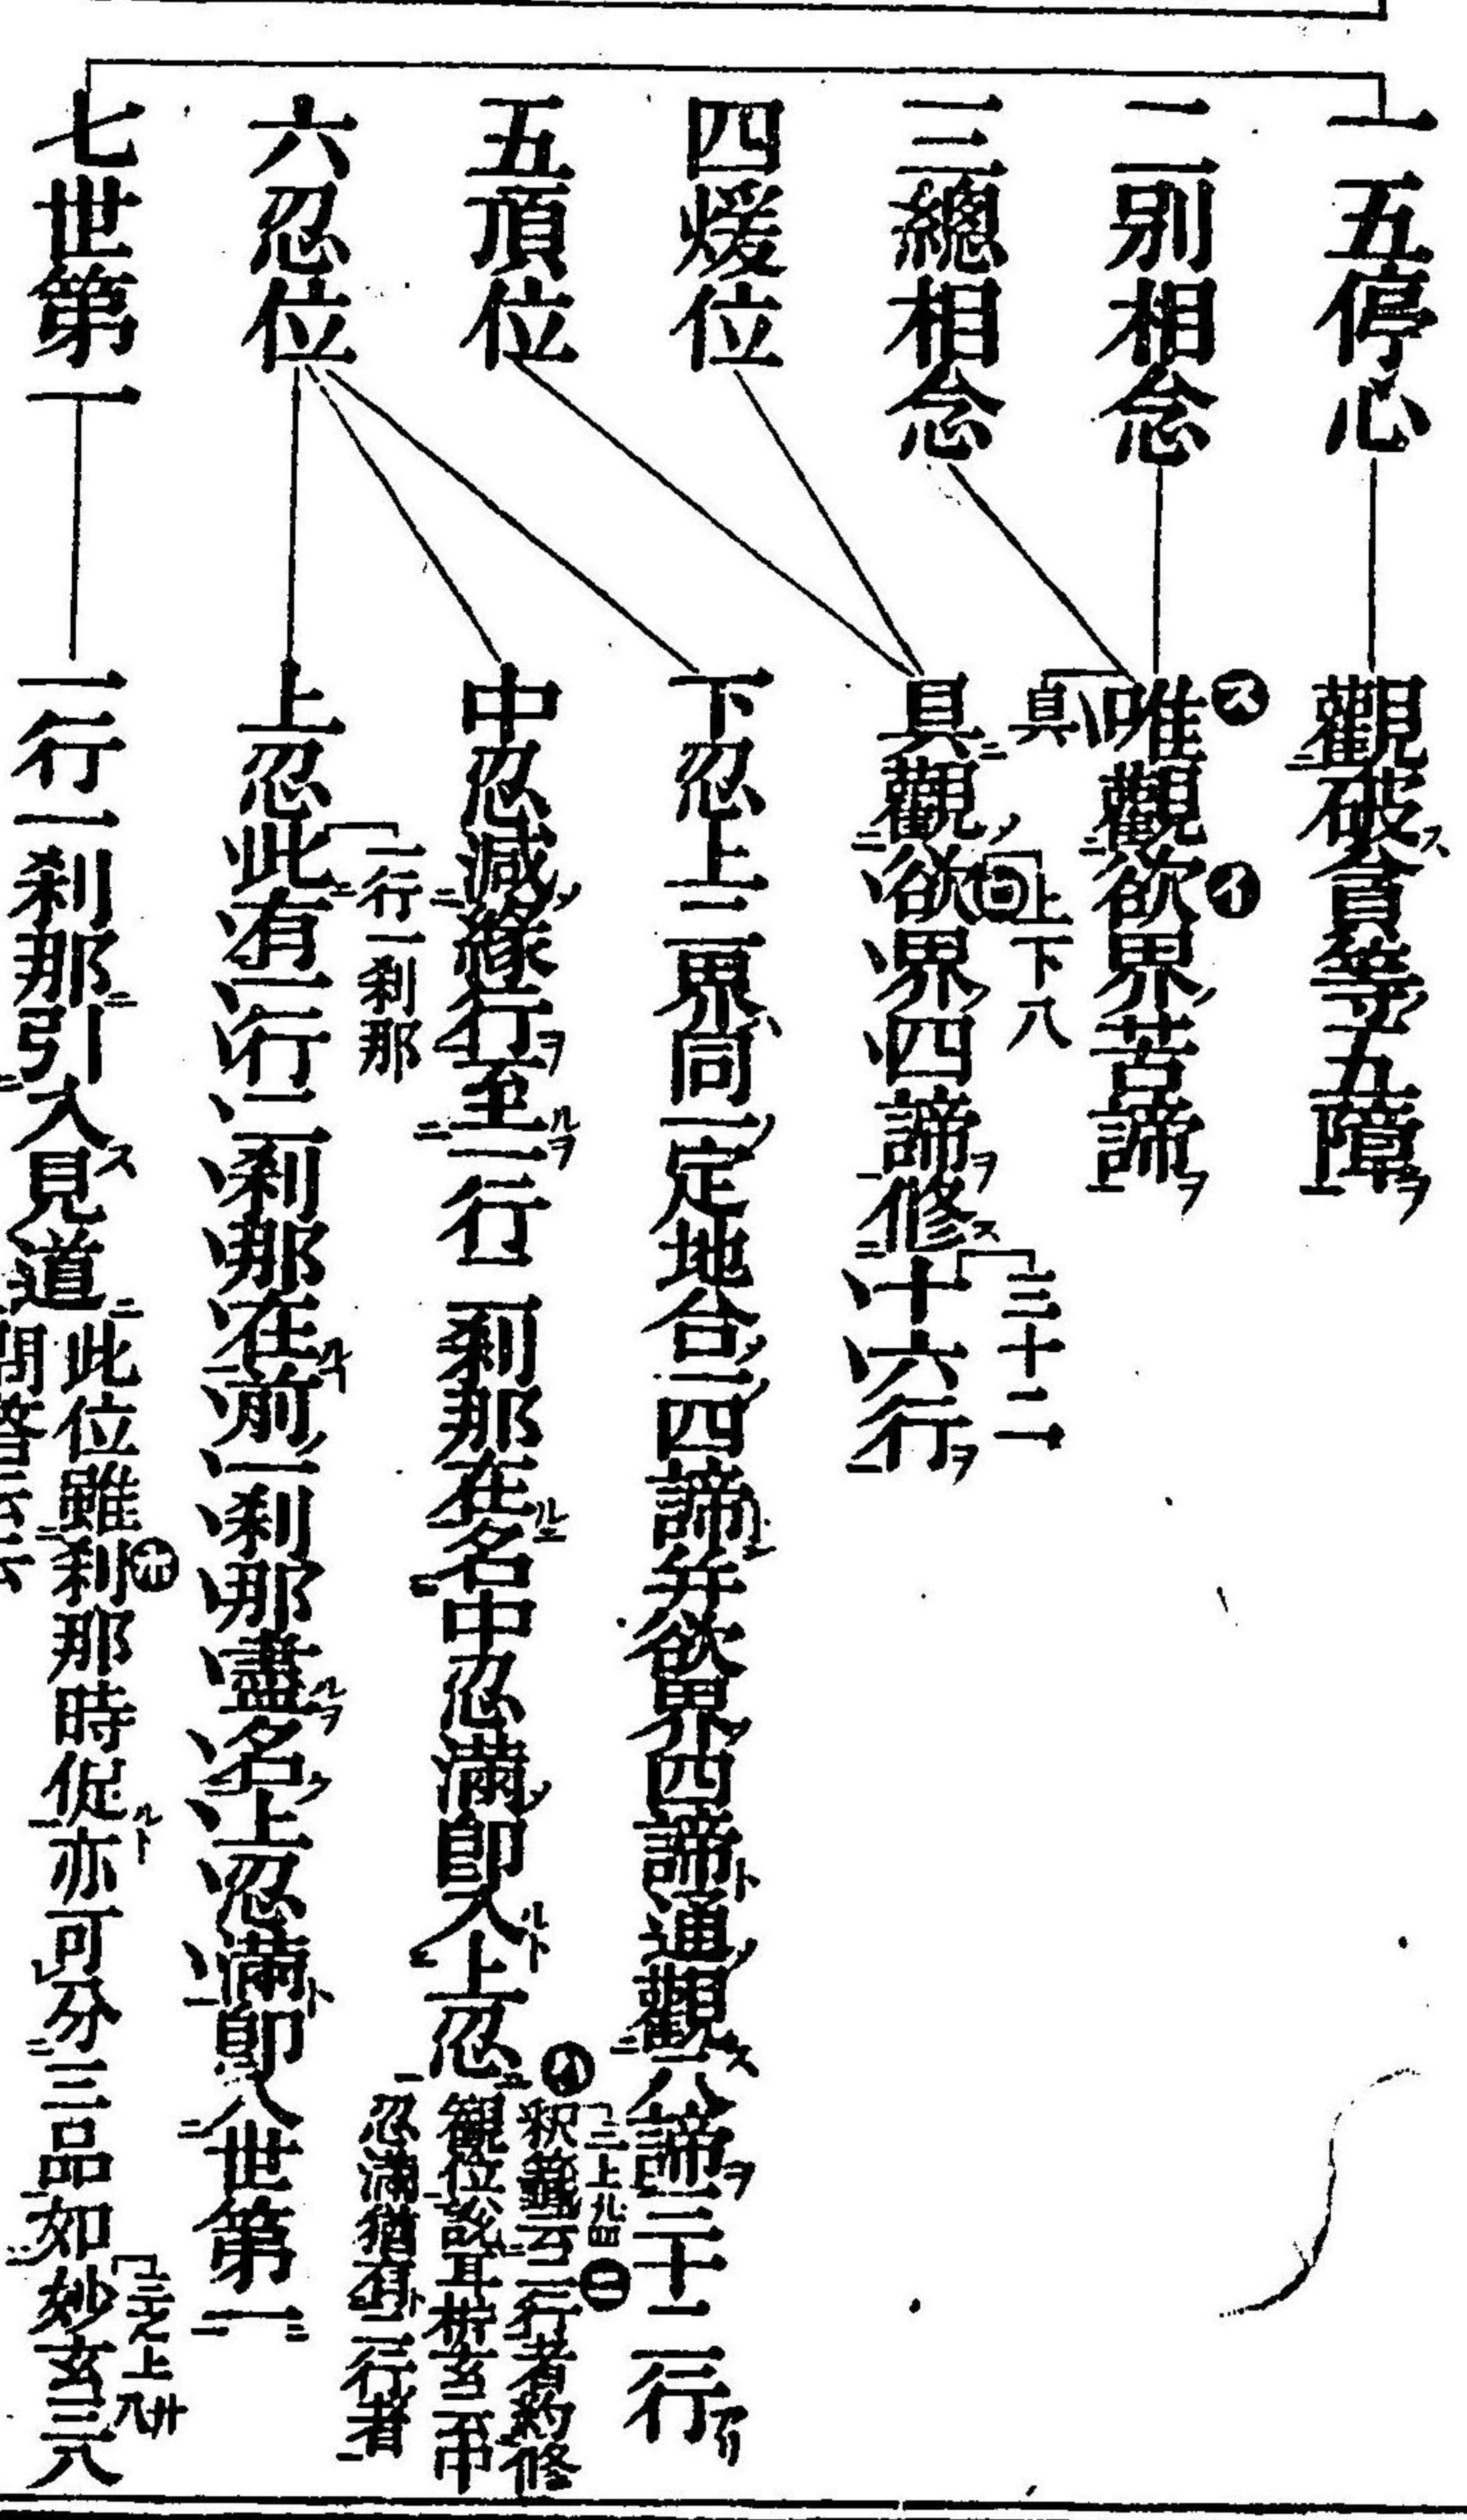 一五停心
二別相念
三總相念
四煖位
五頂位
六忍位
七世第一
觀破貪等五障
唯觀欲界苦諦
具
上下八
具觀欲界四諦修十六行
三十二
下忍上二界同一定地合一四諦并欲界四諦通觀八諦三十二行
中忍減緣行至一行二刹那在名中忍滿即入上忍
釈籤云二行者約修
觀位說耳
忍滿猶有二行者
一行一刹那
上忍此有一行二刹那在前一刹那盡名上忍滿即入世第一
一行一刹那引入見道
此位雖刹那時促亦可分三品如妙玄三八